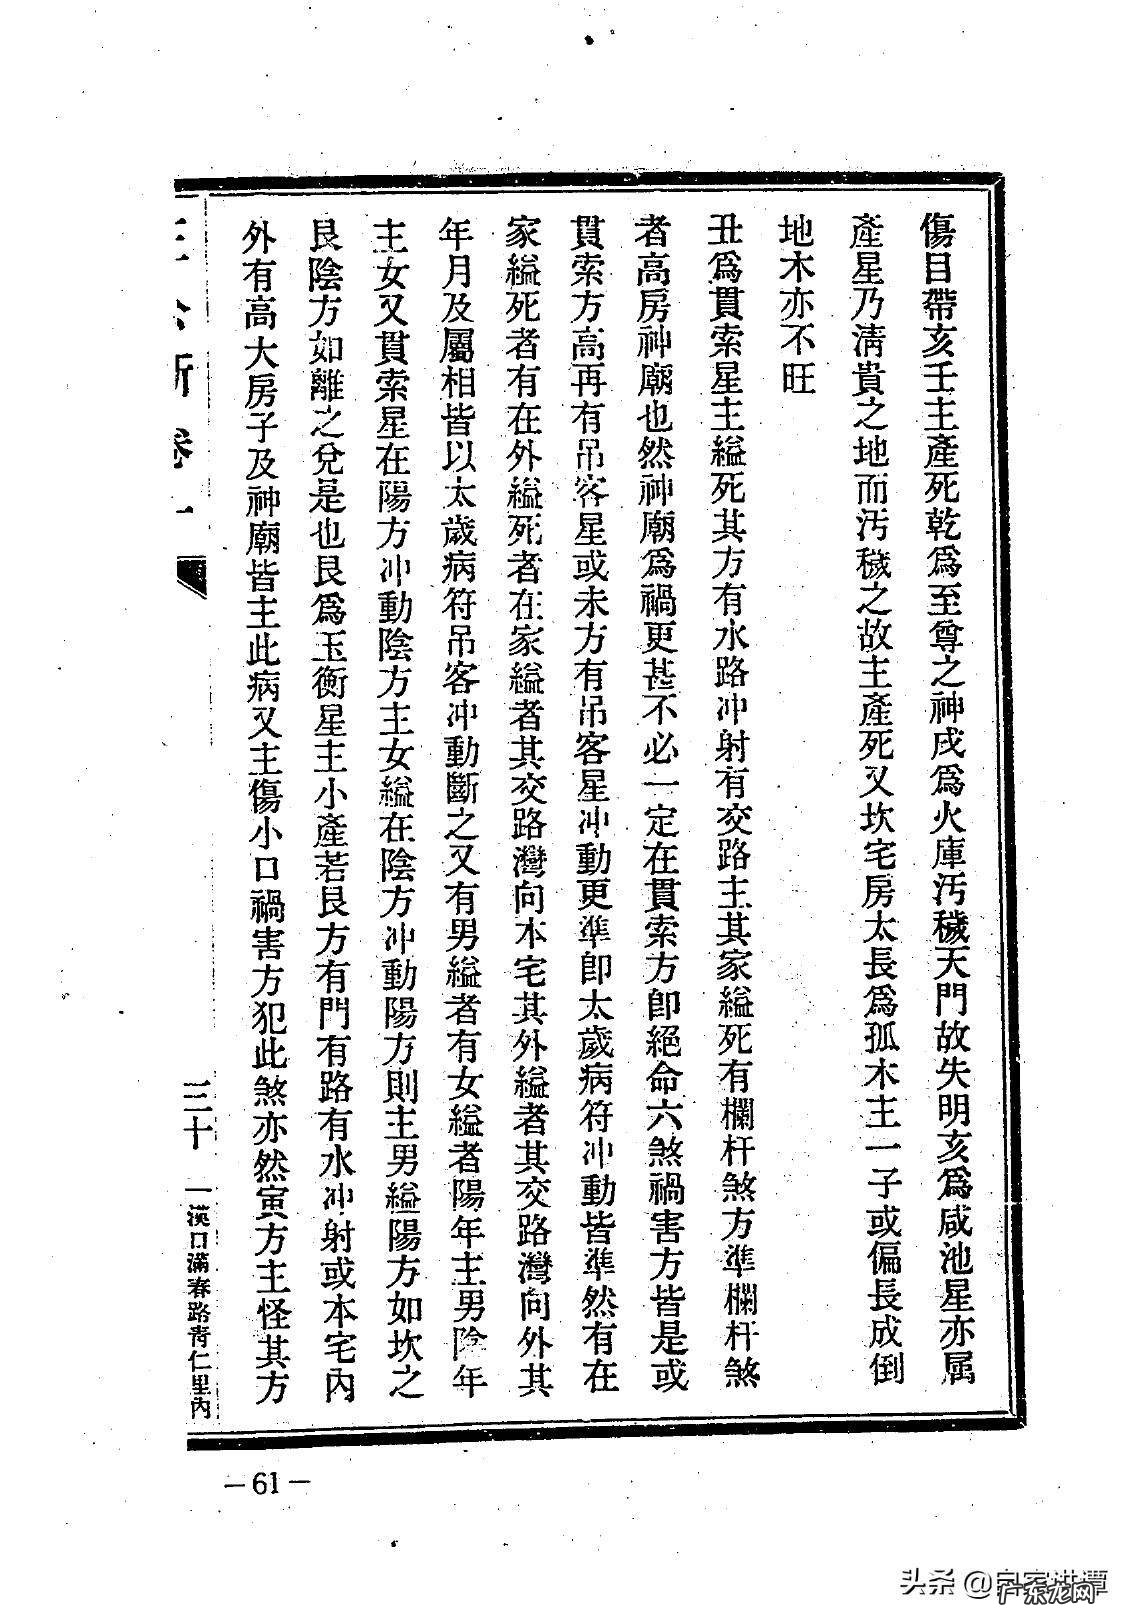 傷目帶亥壬主產死乾爲至尊之神戌爲火庫污穢天門故失明亥爲咸池星亦屬
產星乃淸貴之地而污穢之故主產死又坎宅房太長爲孤木主一子或偏長成倒
地木亦不旺
丑爲貫索星主縊死其方有水路冲射有交路主其家縊死有欄杆煞方準欄杆煞
者高房神廟也然神廟爲禍更甚不必一定在貫索方卽絕命六煞禍害方皆是或
貫索方高再有吊客星或未方有吊客星冲動更準卽太歲病符冲動皆準然有在
家縊死者有在外縊死者在家縊者其交路灣向本宅其外縊者其交路灣向外其
年月及屬相皆以太歲病符吊客冲動斷之又有男縊者有女縊者陽年主男陰年
主女又貫索星在陽方冲動陰方主女縊在陰方冲動陽方則主男縊陽方如坎之
艮陰方如離之兌是也艮爲玉衡星主小產若艮方有門有路有水冲射或本宅內
外有高大房子及神廟皆主此病又主傷小口禍害方犯此煞亦然寅方主怪其方
卷一
三十
漢口滿春路靑仁里內
—61—
头条 @
广东龙网